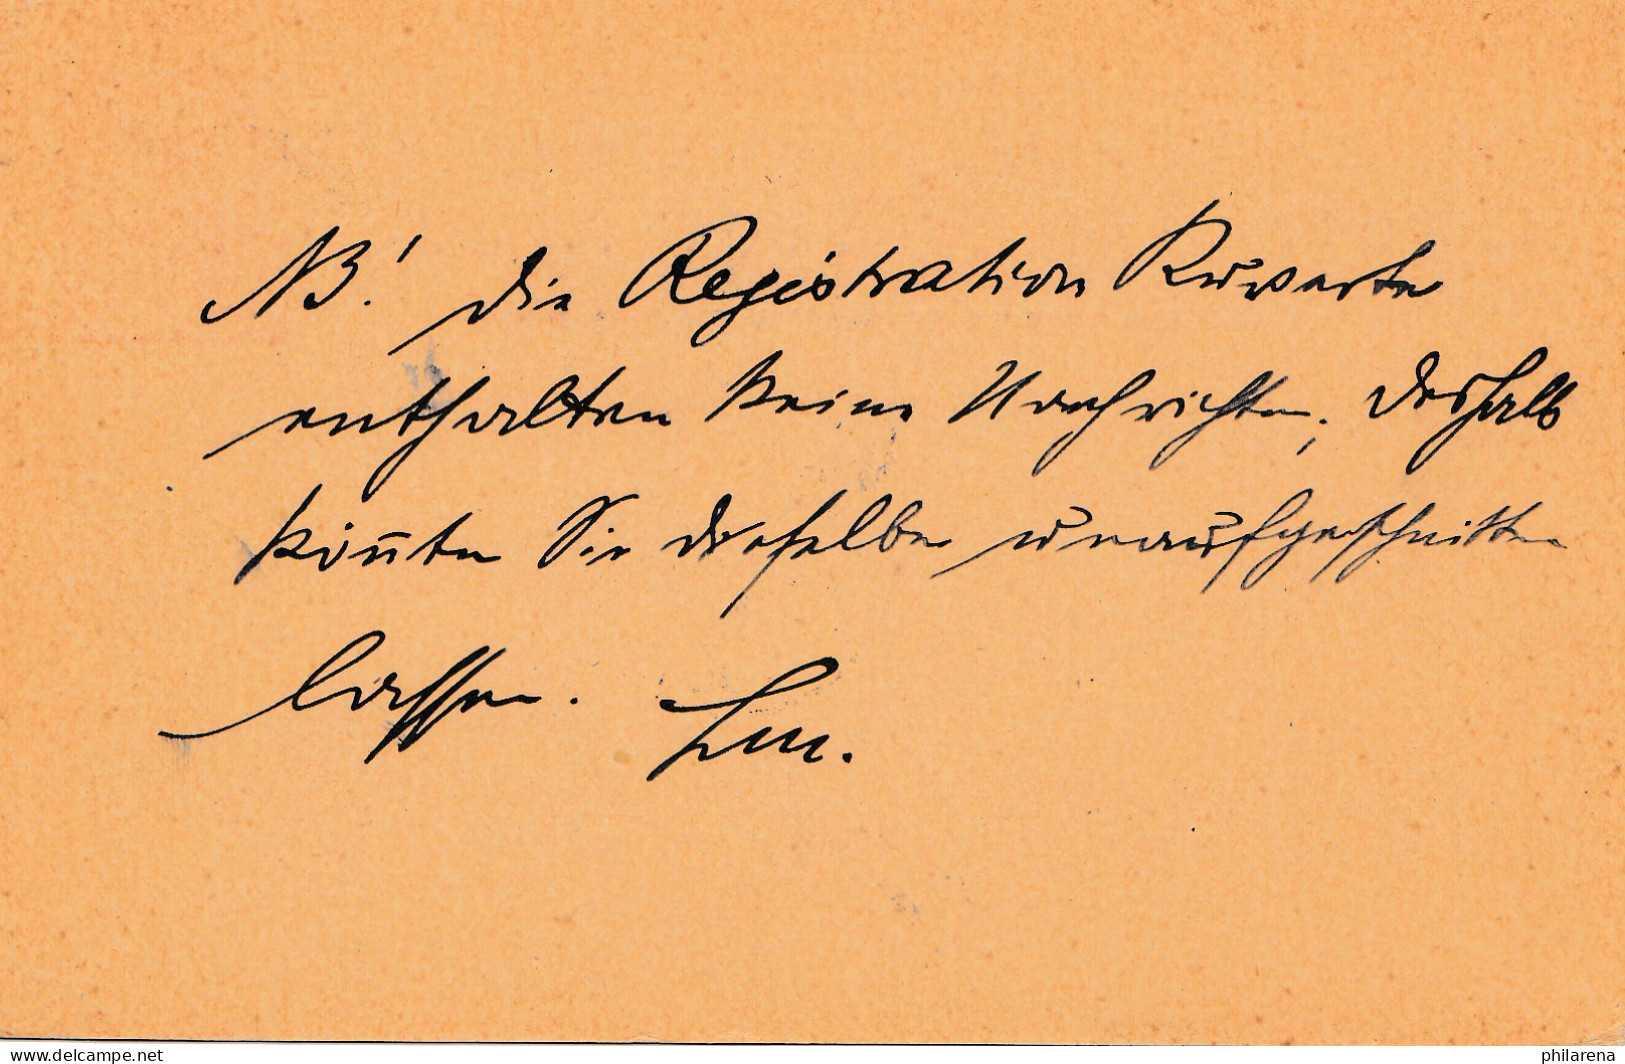 NB! Die Registration Kuverte
enthalten keine Nachrichten, deshalb
können Sie dieselben unaufgeschnitten
lassen.
www.delcampe.net
philarena